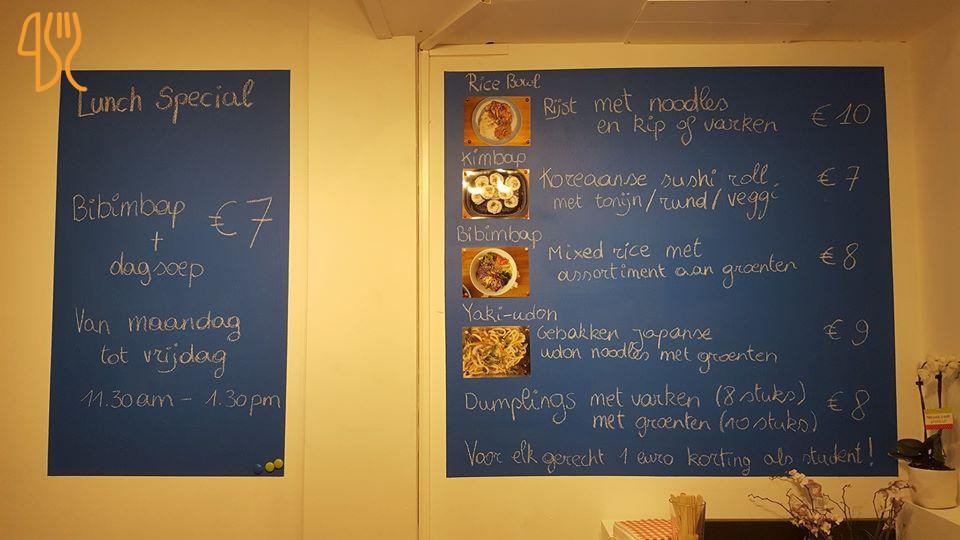 Lunch Special
Bibimbap €7
+
dagsoep
Van maandag
tot vrijdag
11.30am - 1.30pm
Rice Bowl
Rijst met noodles € 10
en kip of varken
Kimbap
Koreaanse sushi roll € 7
met tonijn/rund/veggi
Bibimbap
Mixed rice met € 8
assortiment aan groenten
Yaki-udon
Gebakken japanse € 9
udon noodles met groenten
Dumplings met varken (8 stuks) € 8
met groenten (10 stuks)
Voor elk gerecht 1 euro korting als student!